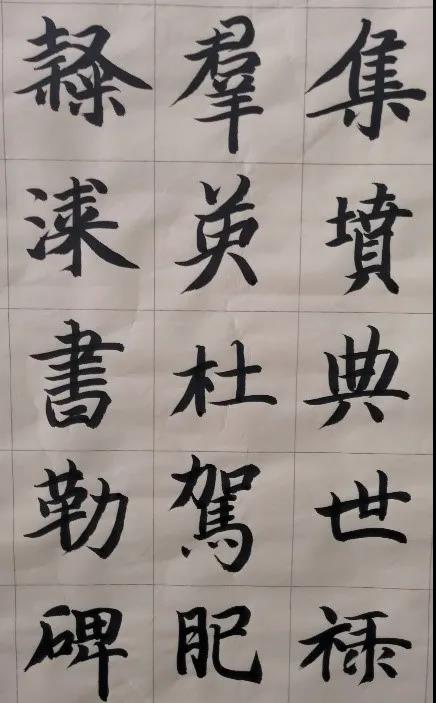 集墳典世禄
羣英杜駕肥
隸漆書勒碑